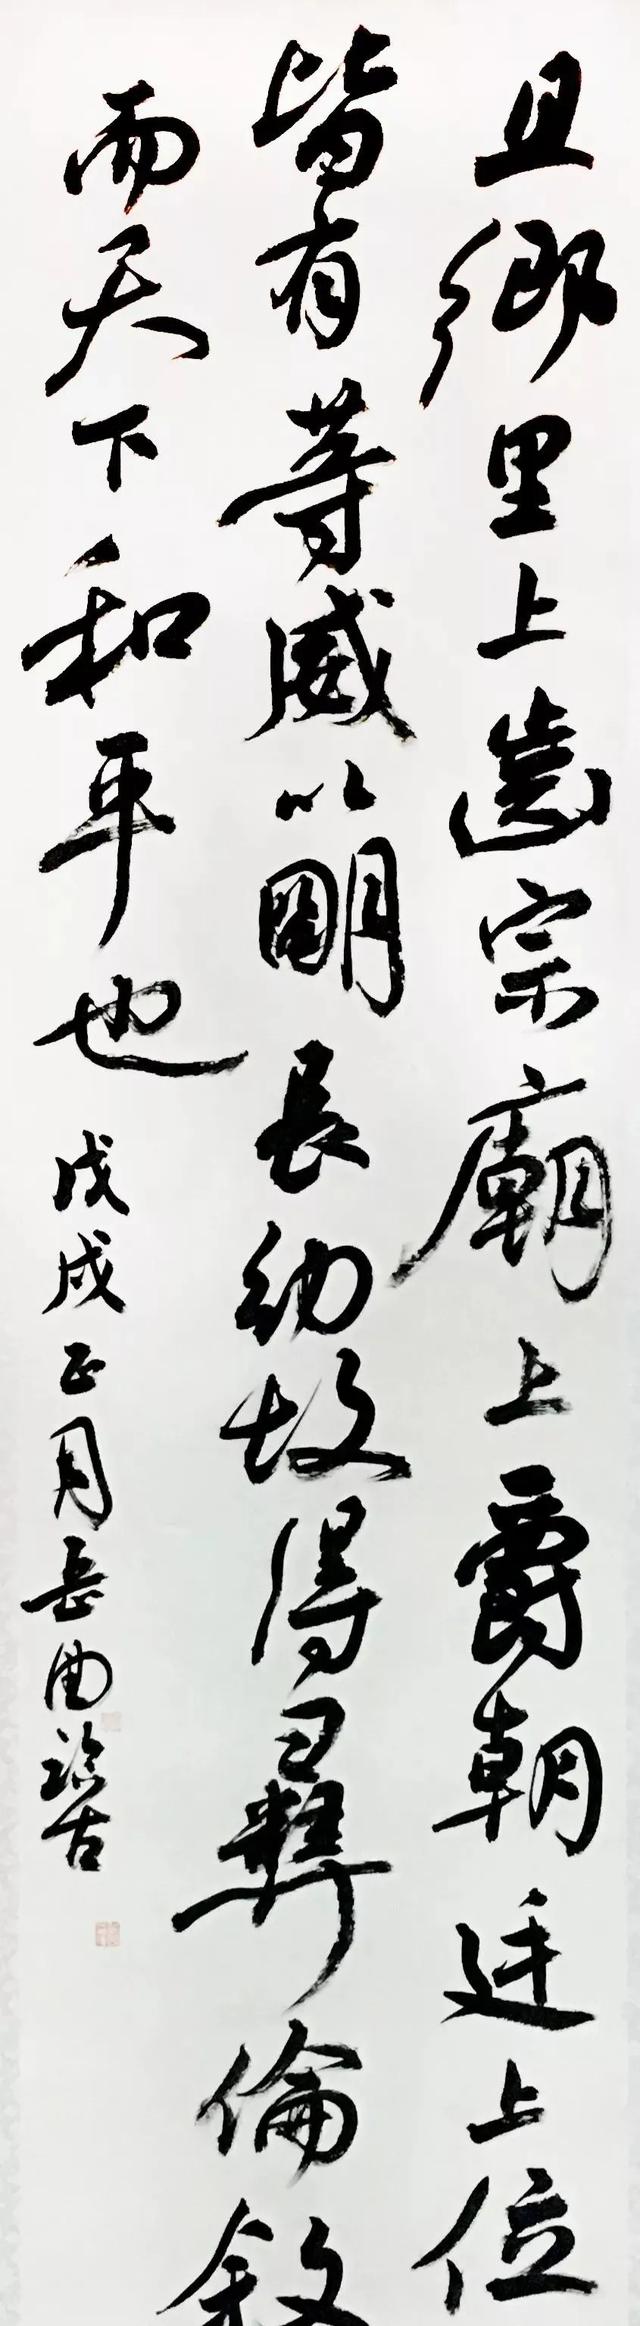 且鄉里上齒宗廟上爵朝廷上位
皆有等威以明長幼故得彝倫敘
而天下和平也
戊戌正月岳曲臨古